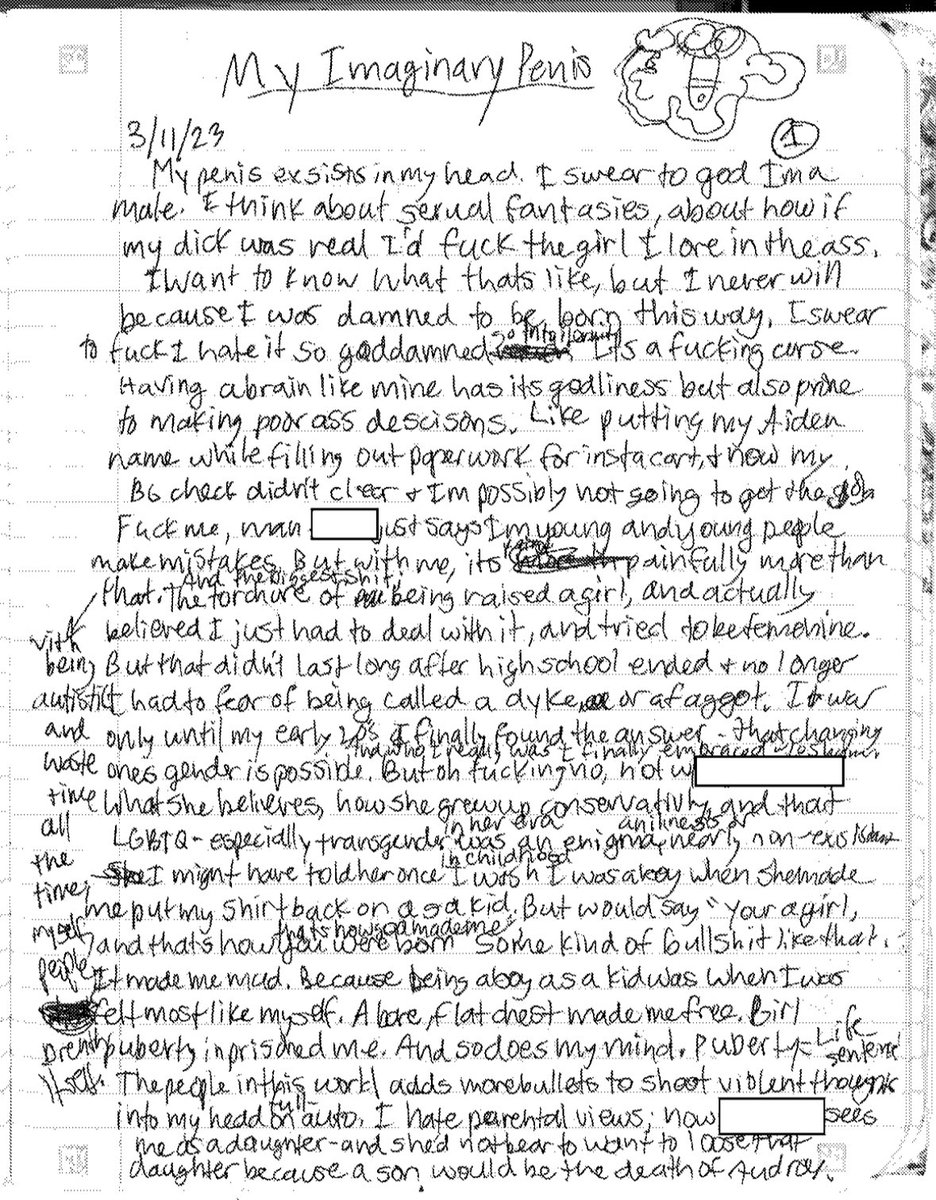 My Imaginary Penis
3/11/23
1
My penis exsists in my head. I swear to god Im a
male. I think about sexual fantasies, about how if
my dick was real I'd fuck the girl I love in the ass.
I want to know what thats like, but I never will
because I was damned to be born this way. I swear
to fuck I hate it so goddamned Its a fucking curse.
Having a brain like mine has its godliness but also prone
to making poor ass descisons. Like putting my Aiden
name while filling out paperwork for instacart, + now my
BG check didn't clear + Im possibly not going to get the job
Fuck me, man ust says Im young and young people
make mistakes. But with me, its painfully more than
And the biggest shit,
that. The torchure of being raised a girl, and actually
believed I just had to deal with it, and tried to be femenine.
But that didn't last long after high school ended + no longer
I had to fear of being called a dyke or a faggot. It was
only until my early 20's I finally found the answer - that changing
ones gender is possible. But oh fucking no, not w
What she believes, how she grew up conservativly and that
in her era
LGBTQ - especially transgender was an enigma, nearly non-
in childhood
I might have told her once I wish I was a boy when she made
me put my shirt back on as a kid. But would say "Your a girl,
thats how god made me
and thats how you were born" Some kind of bullshit like that.
It made me mad. Because being a boy as a kid was when I was
felt most like myself. A bare, flat chest made me free. Girl
puberty inprisoned me. And so does my mind. Puberty = Life
sentence
The people in this world adds more bullets to shoot violent thoughts
full
into my head on auto. I hate parental views; how sees
me as a daughter - and she'd not bear to want to loose that
daughter because a son would be the death of Audrey.
with
being
autistic
and
waste
time
all
the
time;
myself,
people
itself.